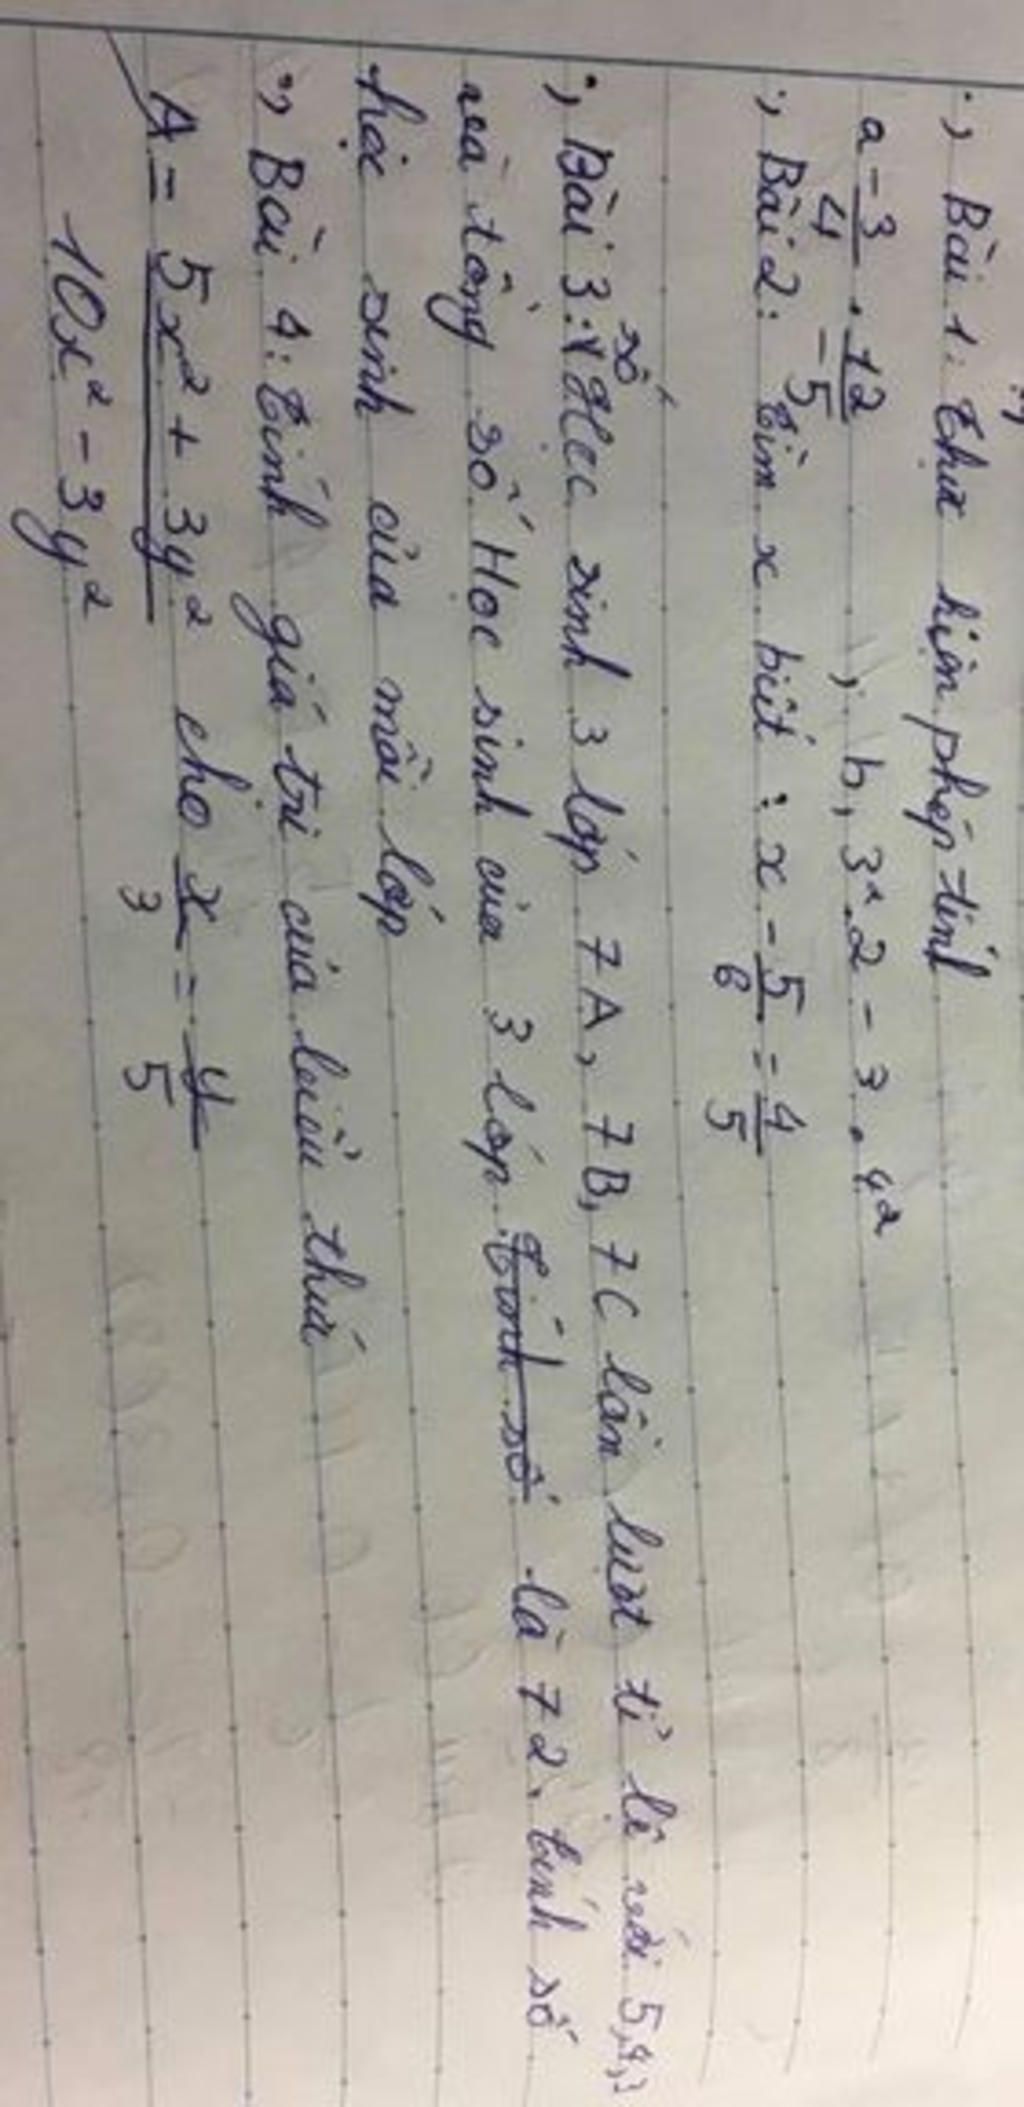 ., Bài 1: Thực hiện phép tính
a -3/4 . 12/-5 , b, 3² . 2 - 3 . 4²
., Bài 2: Tìm x biết : x - 5/6 = 4/5
., Bài 3: Số Học sinh 3 lớp 7A, 7B, 7C lần lượt tỉ lệ với 5,4,3
và tổng số Học sinh của 3 lớp Tính số là 72. tính số
học sinh của mỗi lớp
., Bài 4: Tính giá trị của biểu thức
A = 5x² + 3y² cho x/3 = y/5
10x² - 3y²